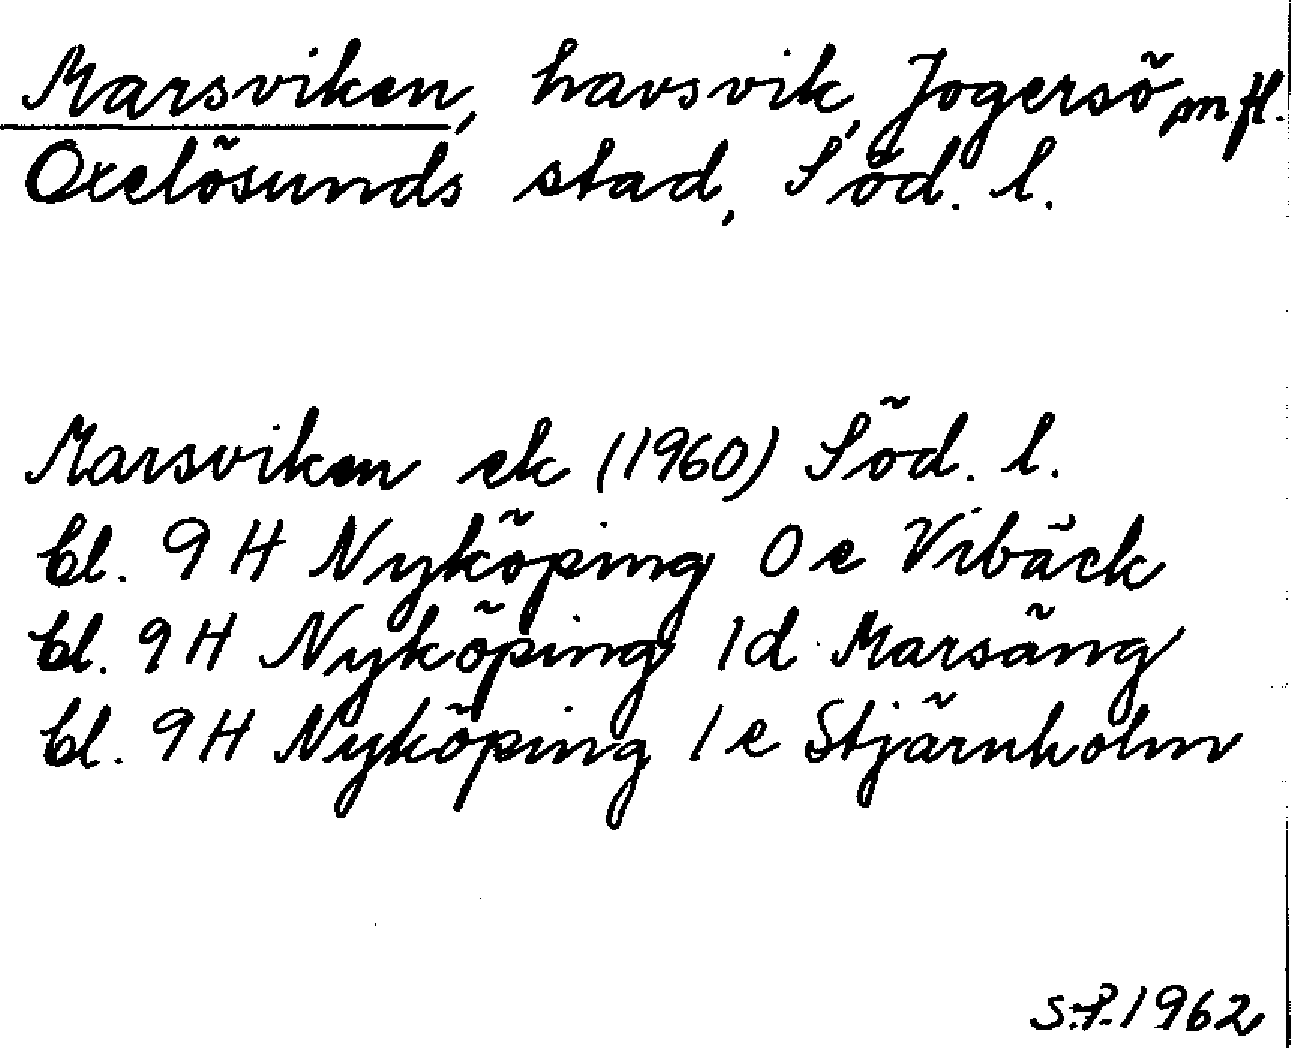 Marsviken, havsvik, Jogersö m fl.
Oxelösunds stad, Söd. l.
Marsviken ek (1960) Söd. l.
bl. 9 H Nyköping 0 e Vibäck
bl. 9 H Nyköping 1 d Marsäng
bl. 9 H Nyköping 1 e Stjärnholm
S.P. 1962